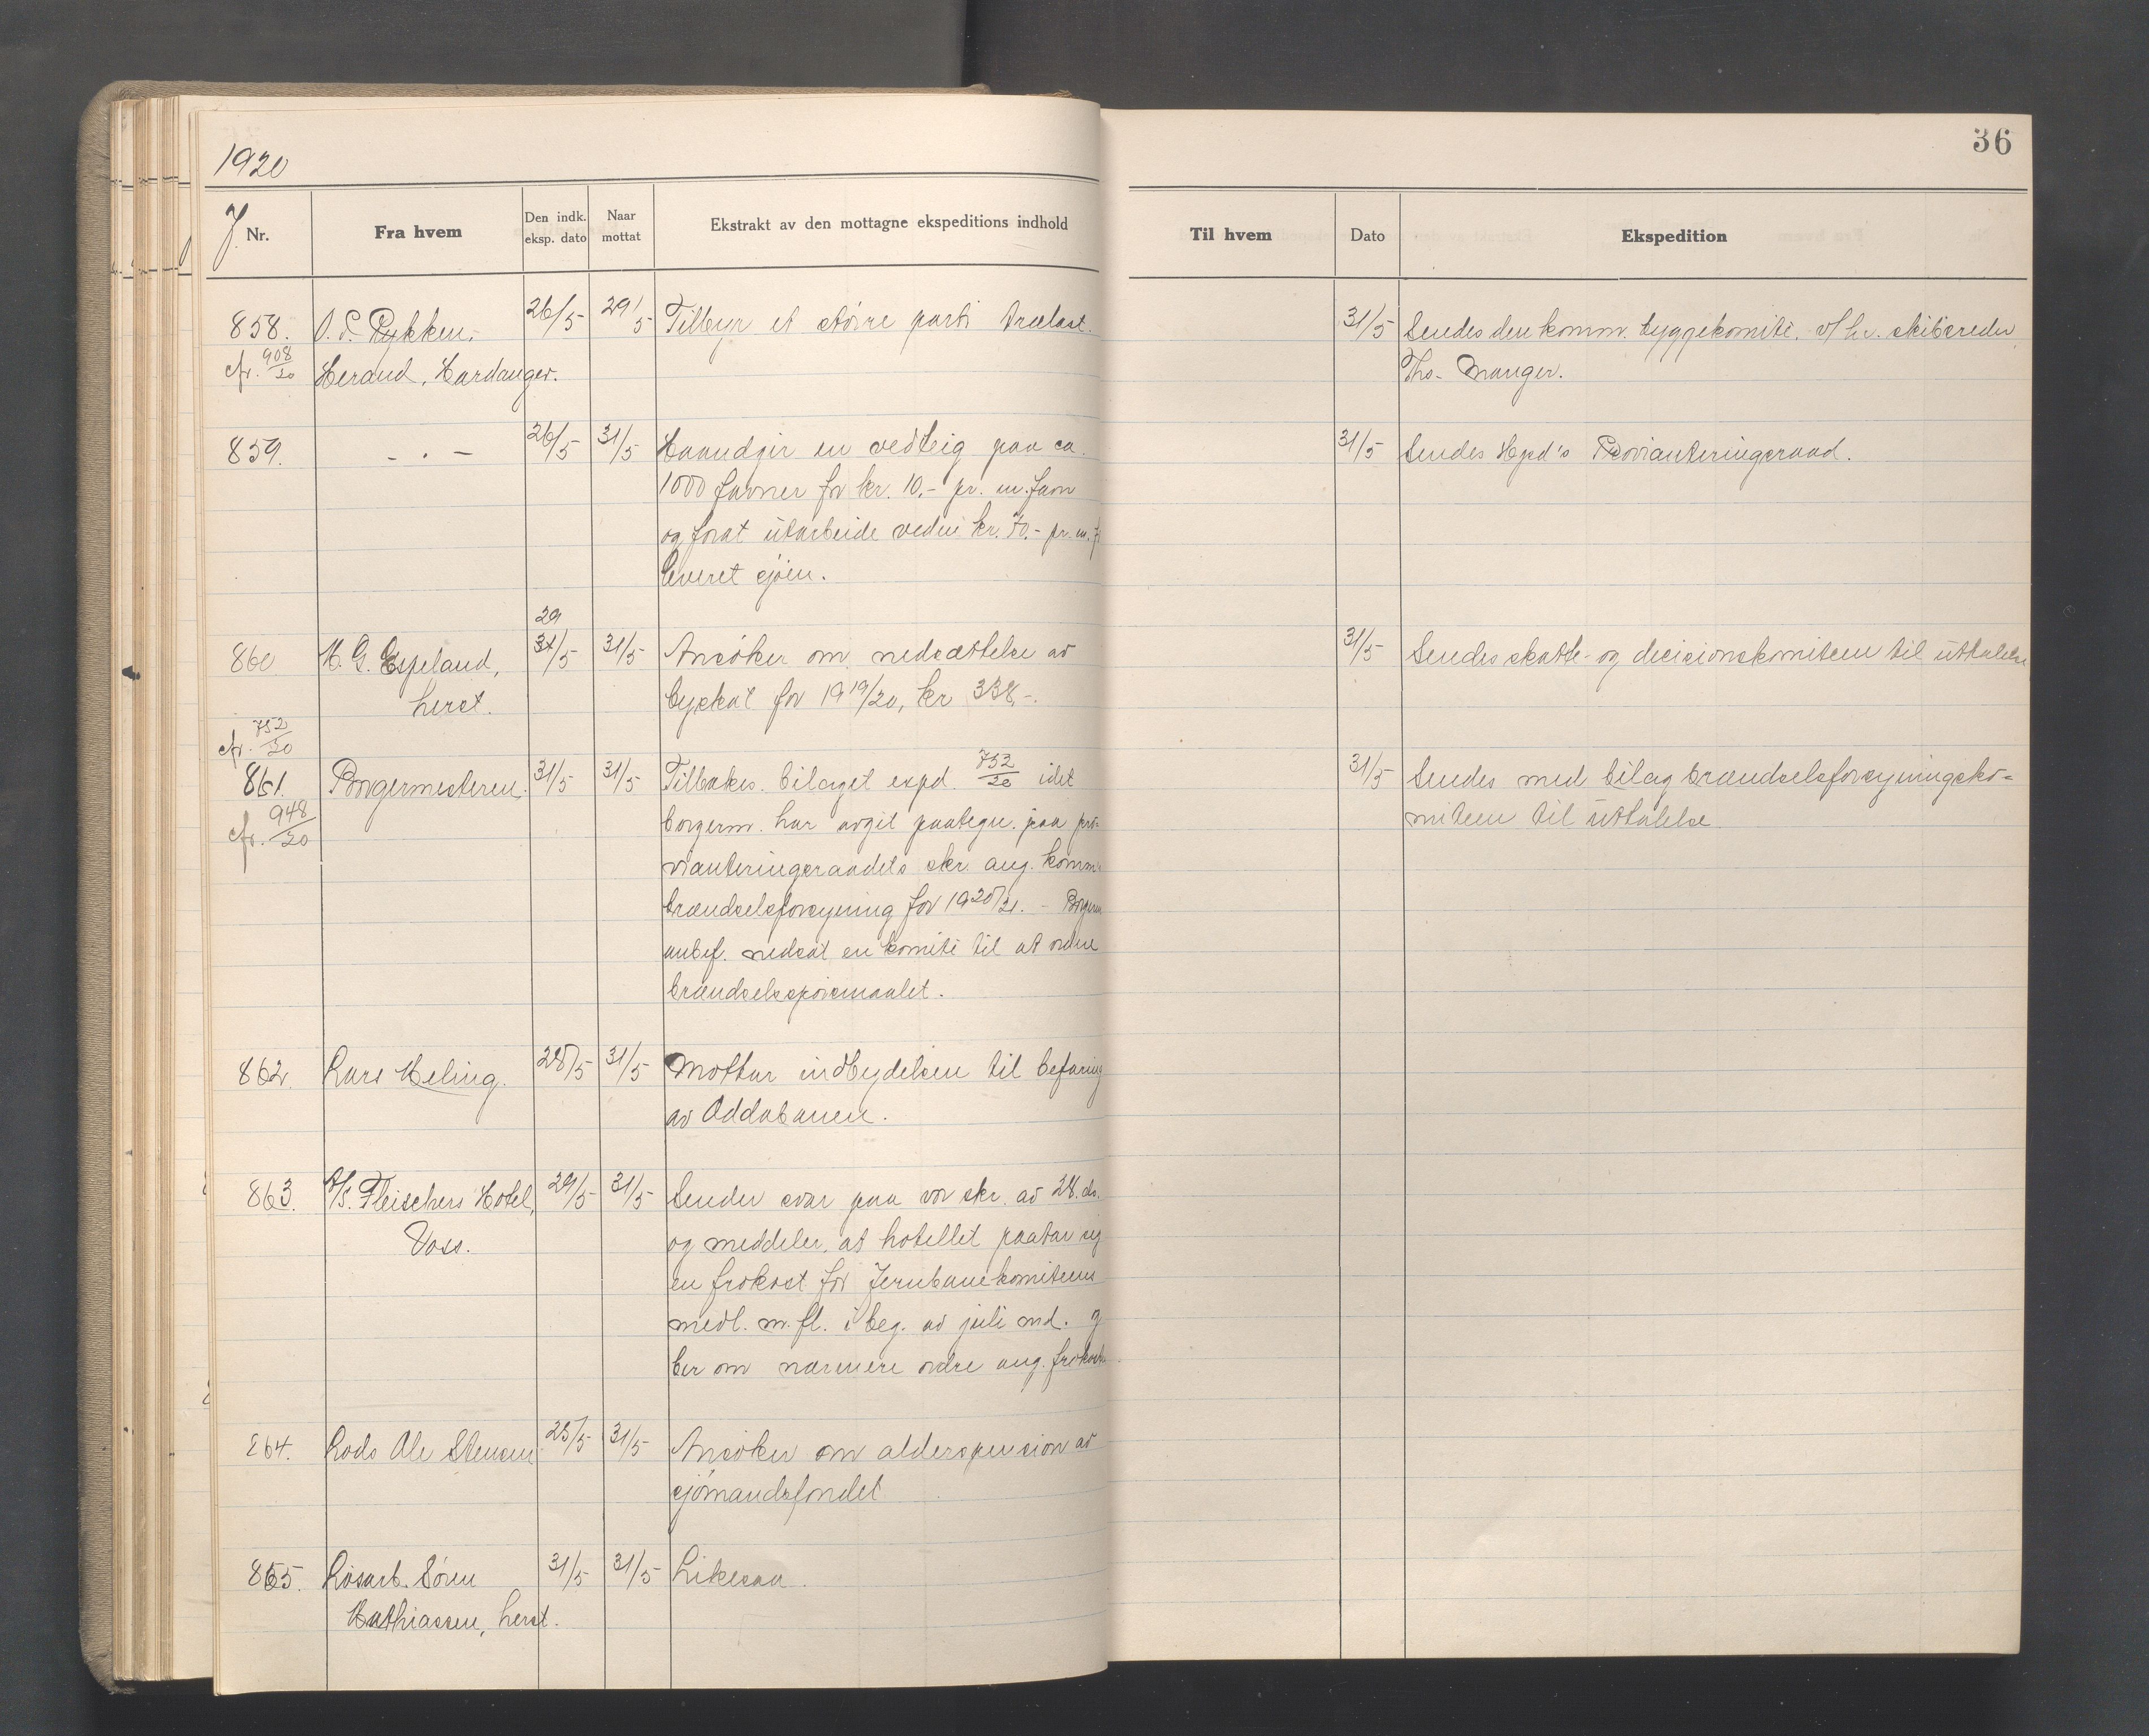 36
1920
J. Nr. Fra hvem Den indk. eksp. dato Naar mottat Ekstrakt av den mottagne ekspeditions indhold Til hvem Dato Ekspedition
858. O. S. Rykken, 26/5 29/5 Tilbyr et større parti trælast. 31/5 Sendes den komm. byggekomite. v/ hr. skibsreder
cfr. 908/20 Herand, Hardanger. Ths. Manger.
859. - . - 26/5 31/5 Haandgir en vedteig paa ca. 31/5 Sendes Hgsd's Provianteringsraad.
1000 favner for kr. 10.- pr. m. favn
og forat utarbeide veden kr. 70.- pr. m. f.
leveret sjøen.
29
860 M. G. Espeland, 31/5 31/5 Ansøker om nedsættelse av 31/5 Sendes skatte- og decisionskomiteen til uttalelse
herst. byskat for 1919/20, kr 338,-.
cfr. 752/20
861. Borgermesteren. 31/5 31/5 Tilbakes. bilaget expd. 752/20 idet 31/5 Sendes med bilag brændselsforsyningsko-
cfr. 948/20 borgerm. har avgit paategn. paa pro- miteen til uttalelse
vianteringsraadets skr. ang. komm.
brændselsforsyning for 1920/21. - Borgerm
anbef. nedsat en komite til at ordne
brændselsspørsmaalet.
862. Lars Meling. 28/5 31/5 Mottar indbydelsen til befaring
av Oddabanen.
863. A/S. Fleischers Hotel, 29/5 31/5 Sender svar paa vor skr. av 28. ds.
Voss. og meddeler, at hotellet paatar sig
en frokost for Jernbanekomiteens
medl. m. fl. i beg. av juli md. og
ber om nærmere ordre ang. frokosten.
864. Lods Ole Stensen 25/5 31/5 Ansøker om alderspension av
sjømandsfondet
865. Løsarb. Søren 31/5 31/5 Likesaa.
Mathiassen, herst.